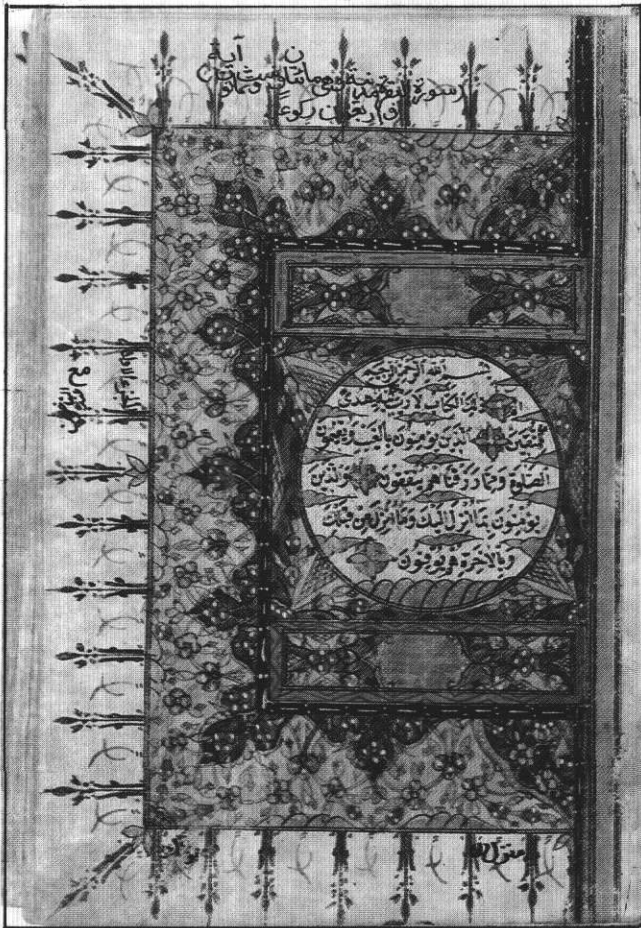 سورة البقرة مدنية وهي مائتان وست وثمانون آية
وأربعين ركوعاً
بسم الله الرحمن الرحيم
الم ذلك الكتاب لا ريب فيه هدى
للمتقين الذين يؤمنون بالغيب ويقيمون
الصلوة ومما رزقناهم ينفقون والذين
يؤمنون بما انزل اليك وما انزل من قبلك
وبالاخرة هم يوقنون